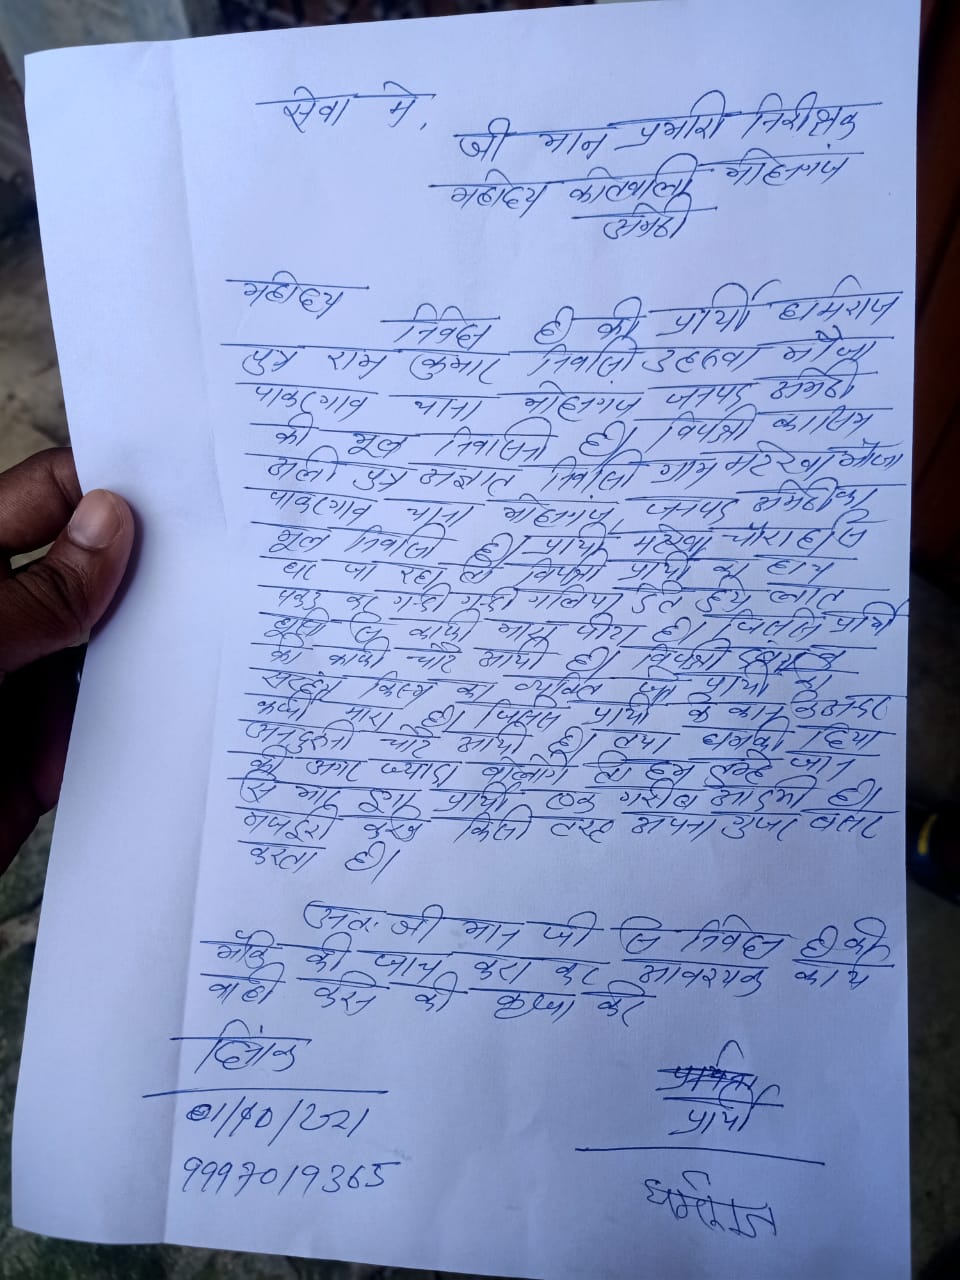 सेवा मे,
श्री मान प्रभारी निरीक्षक
महोदय कोतवाली मोहनगंज
अमेठी
महोदय
निवेदन है की प्रार्थी धर्मराज
पुत्र राम कुमार निवासी टहलवा मौजा
पाकरगाव थाना मोहनगंज जनपद अमेठी
की मूल निवासी है। विपक्षी कासिम
अली पुत्र अज्ञात निवासी ग्राम मटेरवा मौजा
पाकरगाव थाना मोहनगंज, जनपद अमेठी का
मूल निवासी है। प्रार्थी मटेरवा चौराहा से
घर जा रहा था विपक्षी प्रार्थी का हाथ
पकड़ कर गन्दी गन्दी गलिया देते हुये लात
घूसो से काफी मारा पीटा है। जिससे प्रार्थी
को काफी चोटे आयी है। विपक्षी
किस्म का व्यक्ति है प्रार्थी को
मारा है। जिससे प्रार्थी के कान के अन्दर
अन्दरुनी चोटे आयी है। तथा धमकी दिया
की अगर ज्यादा बोलोगे तो हम तुम्हे जान
से मार देगे प्रार्थी एक गरीब आदमी है।
मजदूरी करके किसी तरह अपना गुजर बसर
करता है।
अतः श्री मान जी से निवेदन है की
मौके की जाच करा कर आवश्यक कार्य
वाही करने की कृपा करे
दिनांक
01/10/2021
9997019365
प्रार्थी
धर्मराज